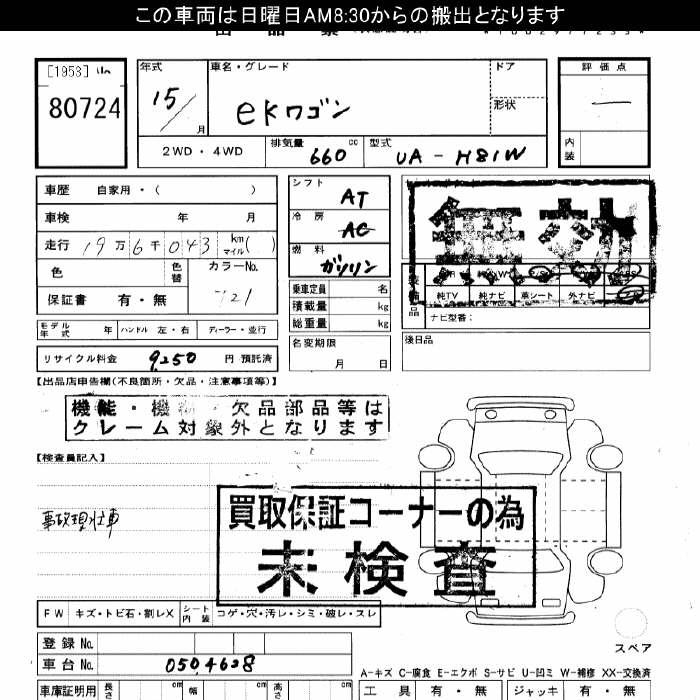 この車両は日曜日AM8:30からの搬出となります
[1953]
80724
年式
15
月
車名・グレード
ekワゴン
ドア
形状
評価点
内装
2WD・4WD
排気量
660
cc
型式
UA-H81W
車歴 自家用・( )
車検 年 月
走行 19万6千043 km マイル( )
色
色替
カラーNo.
保証書 有・無
シフト
AT
冷房
AC
燃料
ガソリン
乗車定員 名
積載量 kg
総重量 kg
名変期限
月 日
純TV
純ナビ
革シート
外ナビ
ナビ型番:
後日品
モデル年式 年
ハンドル 左・右
ディーラー・並行
リサイクル料金 9,250 円 預託済
【出品店申告欄(不良箇所・欠品・注意事項等)】
機能・機 ・欠品部品等は
クレーム対象外となります
【検査員記入】
事故現状車
買取保証コーナーの為
未検査
FW キズ・トビ石・割レX
シート内装 コゲ・穴・汚レ・シミ・破レ・スレ
スペア
登録No.
車台No. 0504628
A-キズ C-腐食 E-エクボ S-サビ U-凹ミ W-補修 XX-交換済
車庫証明用
長さ
cm
幅
cm
高さ
cm
工具 有・無
ジャッキ 有・無